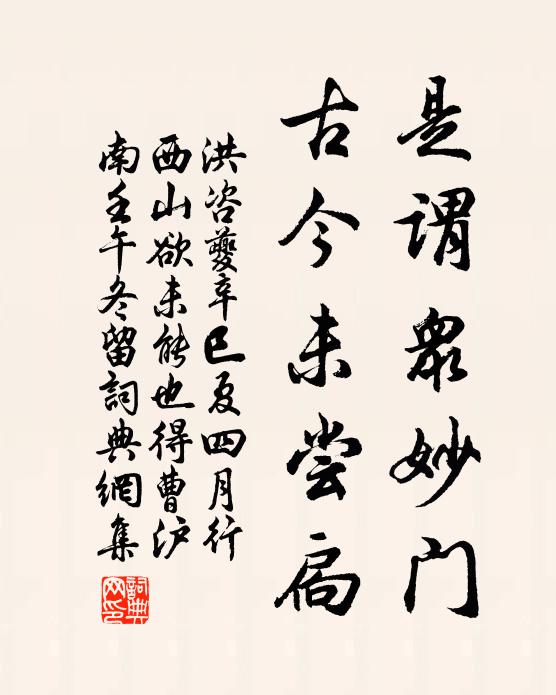 是谓众妙门
古今未尝扃
洪咨夔辛巳夏四月行
西山欲未能也得曹沪
南壬午冬留詞典網集
詞典网印